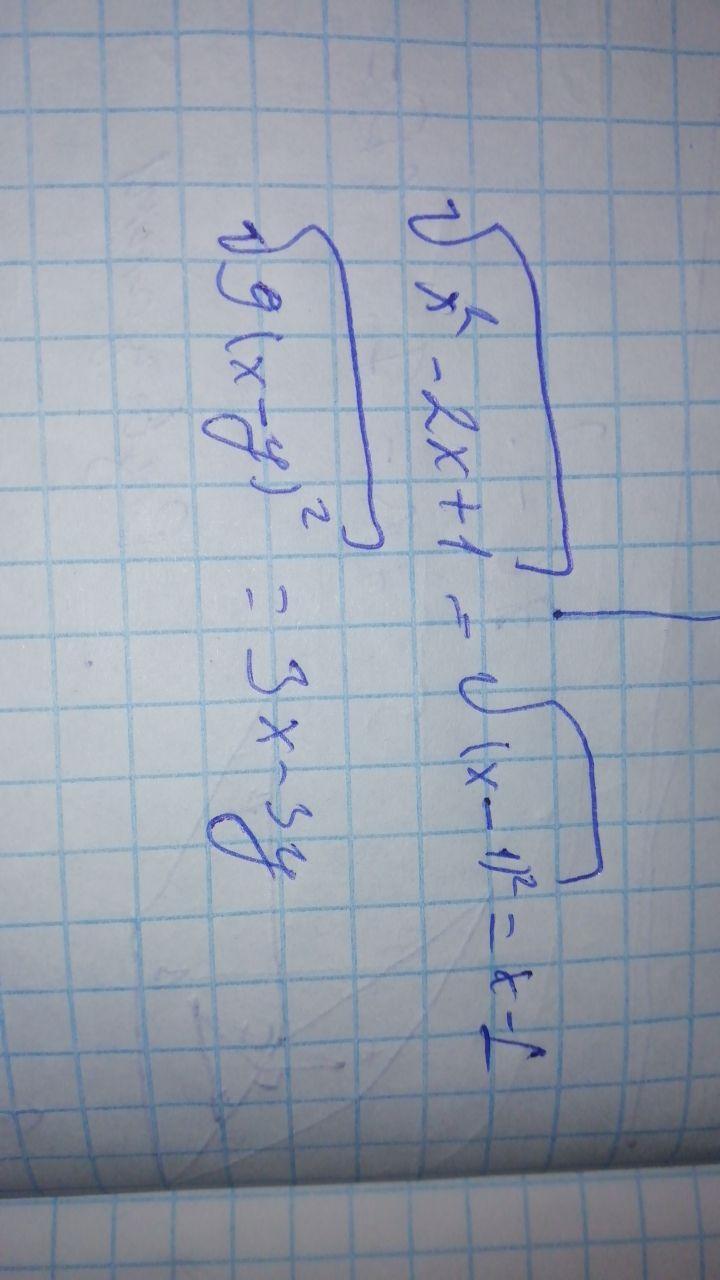 √x² - 2x + 1 = √(x - 1)² = x - 1
√9(x - y)² = 3x - 3y